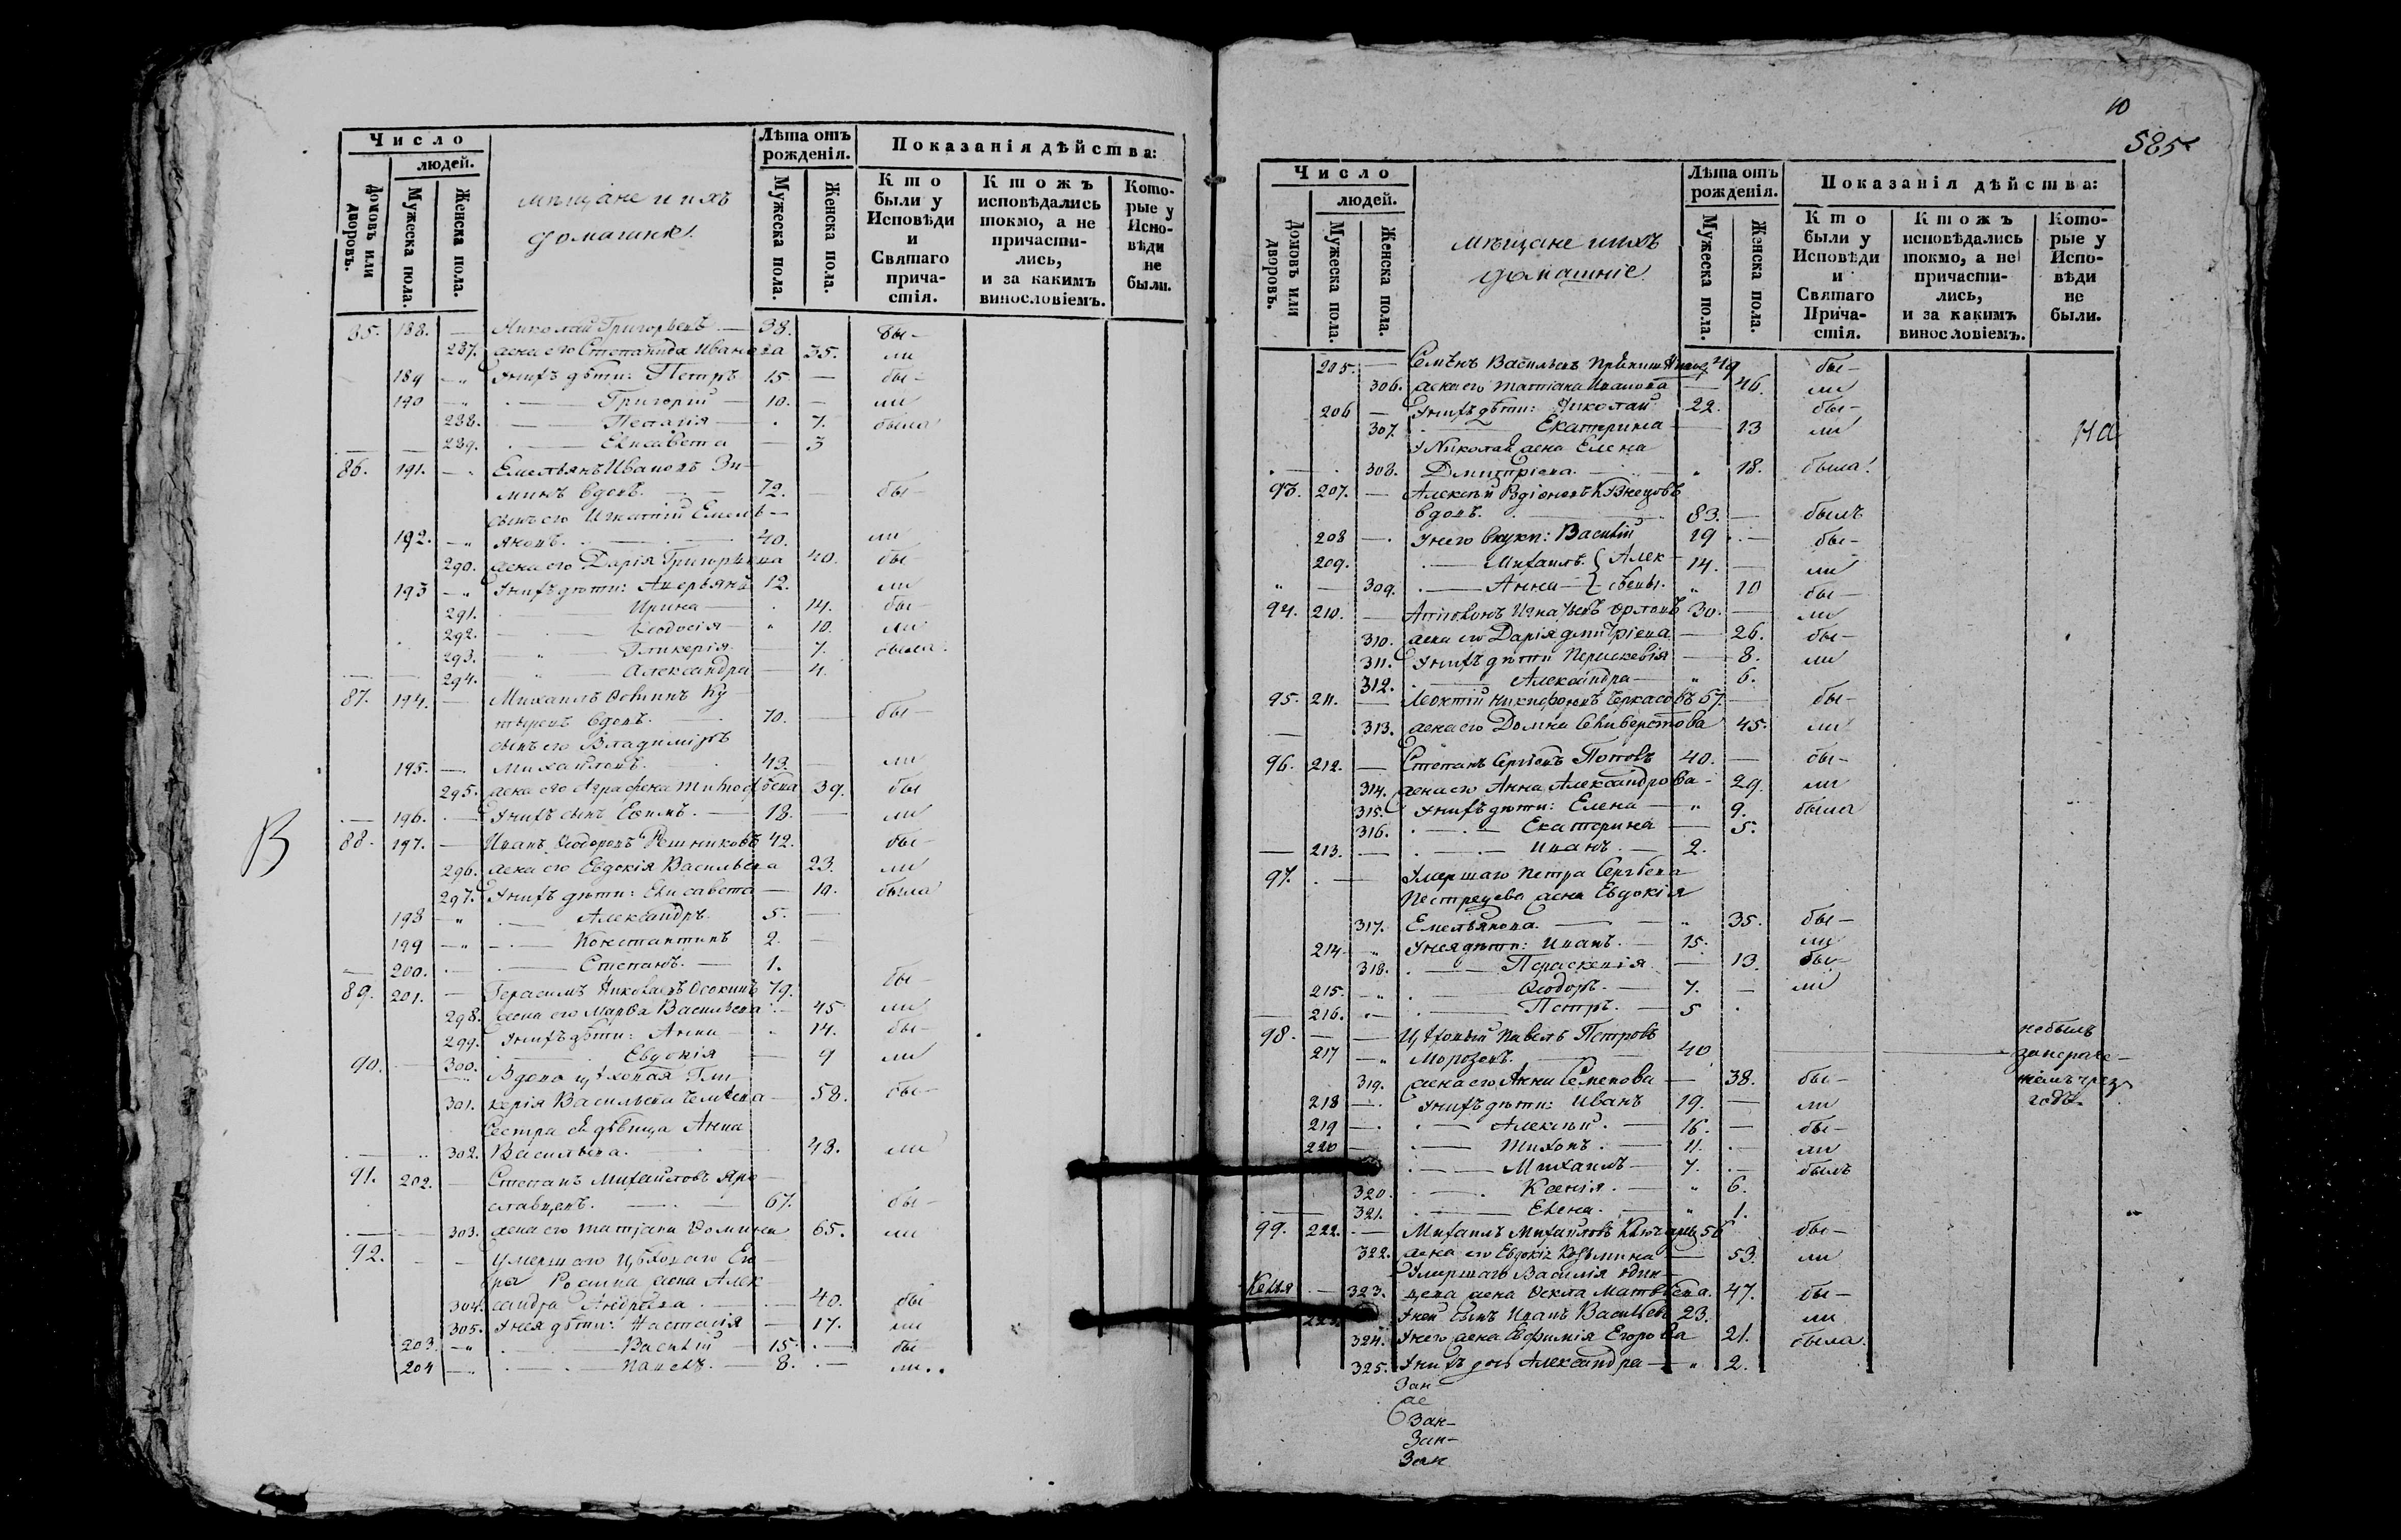 Число
людей.
Домовъ или дворовъ.
Мужеска пола.
Женска пола.
мѣщане и ихъ
домашніе.
Лѣта отъ рожденія.
Мужеска пола.
Женска пола.
Показанія дѣйства:
Кто были у Исповѣди и Святаго причастія.
Ктожъ исповѣдались токмо, а не причастились, и за какимъ винословіемъ.
Которые у Исповѣди не были.
85. 188. — Николай Григорьевъ — 38. бы-
287. жена его Степанида Иванова 35. ли
189 — У нихъ дѣти: Петръ 15 — бы-
190 — Григорій — 10. — ли
288. — Пелагія — 7. была
289. — Елисавета — 3
86. 191. — Емельянъ Ивановъ Зи-
минъ вдовъ. — 72. бы-
сынъ его Игнатій Емель-
192. — яновъ. — 40. ли
290. жена его Дарія Григорьева 40. бы
193 — У нихъ дѣти: Аверьянъ 12. ли
291. — Ирина — 14. бы-
292. — Ѳеодосія — 10. ли
293. — Гликерія — 7. была.
294. — Александра — 4.
87. 194. — Михаилъ Ѳоминъ
вдовъ. — 70. — бы-
сынъ его Владиміръ
195. — Михайловъ. — 43. — ли
295. жена его Аграфена 39. бы
196. — У нихъ сынъ Ефимъ. — 18. — ли
В
88. 197. — Иванъ Ѳеодоровъ Рѣшниковъ 42. бы-
296. жена его Евдокія Васильева 23. ли
297. У нихъ дѣти: Елисавета — была
198 — Александръ. 5. —
199 — Константинъ 2. —
200. — Степанъ. — 1.
89. 201. — Герасимъ Николаевъ Осокинъ 79. бы-
298. жена его Марѳа Васильева — 45 ли
299. У нихъ дѣти: Анна — 14. бы-
300. — Евдокія — 9 ли
90. — Вдова цѣховая Гли-
301. керія Васильева — 58. бы-
Сестра ея дѣвица Анна
302. Васильева. — 48. ли
91. 202. — Степанъ Михайловъ Яро-
славцевъ. — 67. бы-
303. жена его Татіана Ѳомина 65. ли
92. — — Умершаго цѣховаго Его-
ра жена Алек-
304. сандра — 40. бы
305. У нея дѣти: Наталія — 17. ли
203. — Василій — 15. — бы
204 — Павелъ. — 8. — ли..
10
585
Число
людей.
Домовъ или дворовъ.
Мужеска пола.
Женска пола.
мѣщане и ихъ
домашніе
Лѣта отъ рожденія.
Мужеска пола.
Женска пола.
Показанія дѣйства:
Кто были у Исповѣди и Святаго Причастія.
Ктожъ исповѣдались токмо, а не причастились, и за какимъ винословіемъ.
Которые у Исповѣди не были.
205. — Семенъ Васильевъ 49 бы-
306. жена его Татіана Иванова — 46. ли
206 — У нихъ дѣти: Николай 22. бы-
307. — Екатерина — 13 ли
на
У Николая жена Елена
308. Дмитріева. — 18. была.
93. 207. — Алексѣй Кузнецовъ
вдовъ. — 83. — былъ
208 — У него внуки: Василій 19 — бы-
209. — Михаилъ. { Алек- 14. — ли
309. — Анна — { сѣевы. 10 бы-
94. 210. — Орловъ 30. — ли
310. жена его Дарія Дмитріева — 26. бы-
311. У нихъ дѣти Параскевія — 8. ли
312. — Александра — 6.
95. 211. — Леонтій Никифоровъ Черкасовъ 67. — бы-
313. жена его Домна Селиверстова 45. ли
96. 212. — Степанъ Сергѣевъ Поповъ 40. — бы-
314. жена его Анна Александрова — 29. ли
315. У нихъ дѣти: Елена — 9. была
316. — Екатерина — 5.
213. — Иванъ. — 2.
97. — Умершаго Петра Сергѣева
Пестрецова жена Евдокія
317. Емельянова. — 35. бы-
214. — У нея дѣти: Иванъ. — 15. ли
318. — Параскевія — 13. бы-
215. — Ѳеодоръ. — 7. — ли
216. — Петръ. — 5
98. — — Цѣховый Павелъ Петровъ не былъ
217 — Морозовъ. — 40
319. жена его Анна Семенова — 38. бы-
218 — У нихъ дѣти: Иванъ 19. — ли
219 — Алексѣй. — 16. — бы-
220 — Тихонъ. — 11. — ли
— Михаилъ — 7. — былъ
320. — Ксенія. — 6.
321. — Елена. — 1.
99. 222. — Михаилъ Михайловъ 56 бы-
322. жена его Евдокія Козьмина — 53. ли
Умершаго Василія Один-
Келья — 323. цева жена Ѳекла Матвѣева. 47. бы-
223. У ней сынъ Иванъ Васильевъ 23. ли
324. У него жена Евфимія Егорова 21. была.
325. У нихъ дочь Александра — 2.
Зан
Зан-
Зан-
Зан